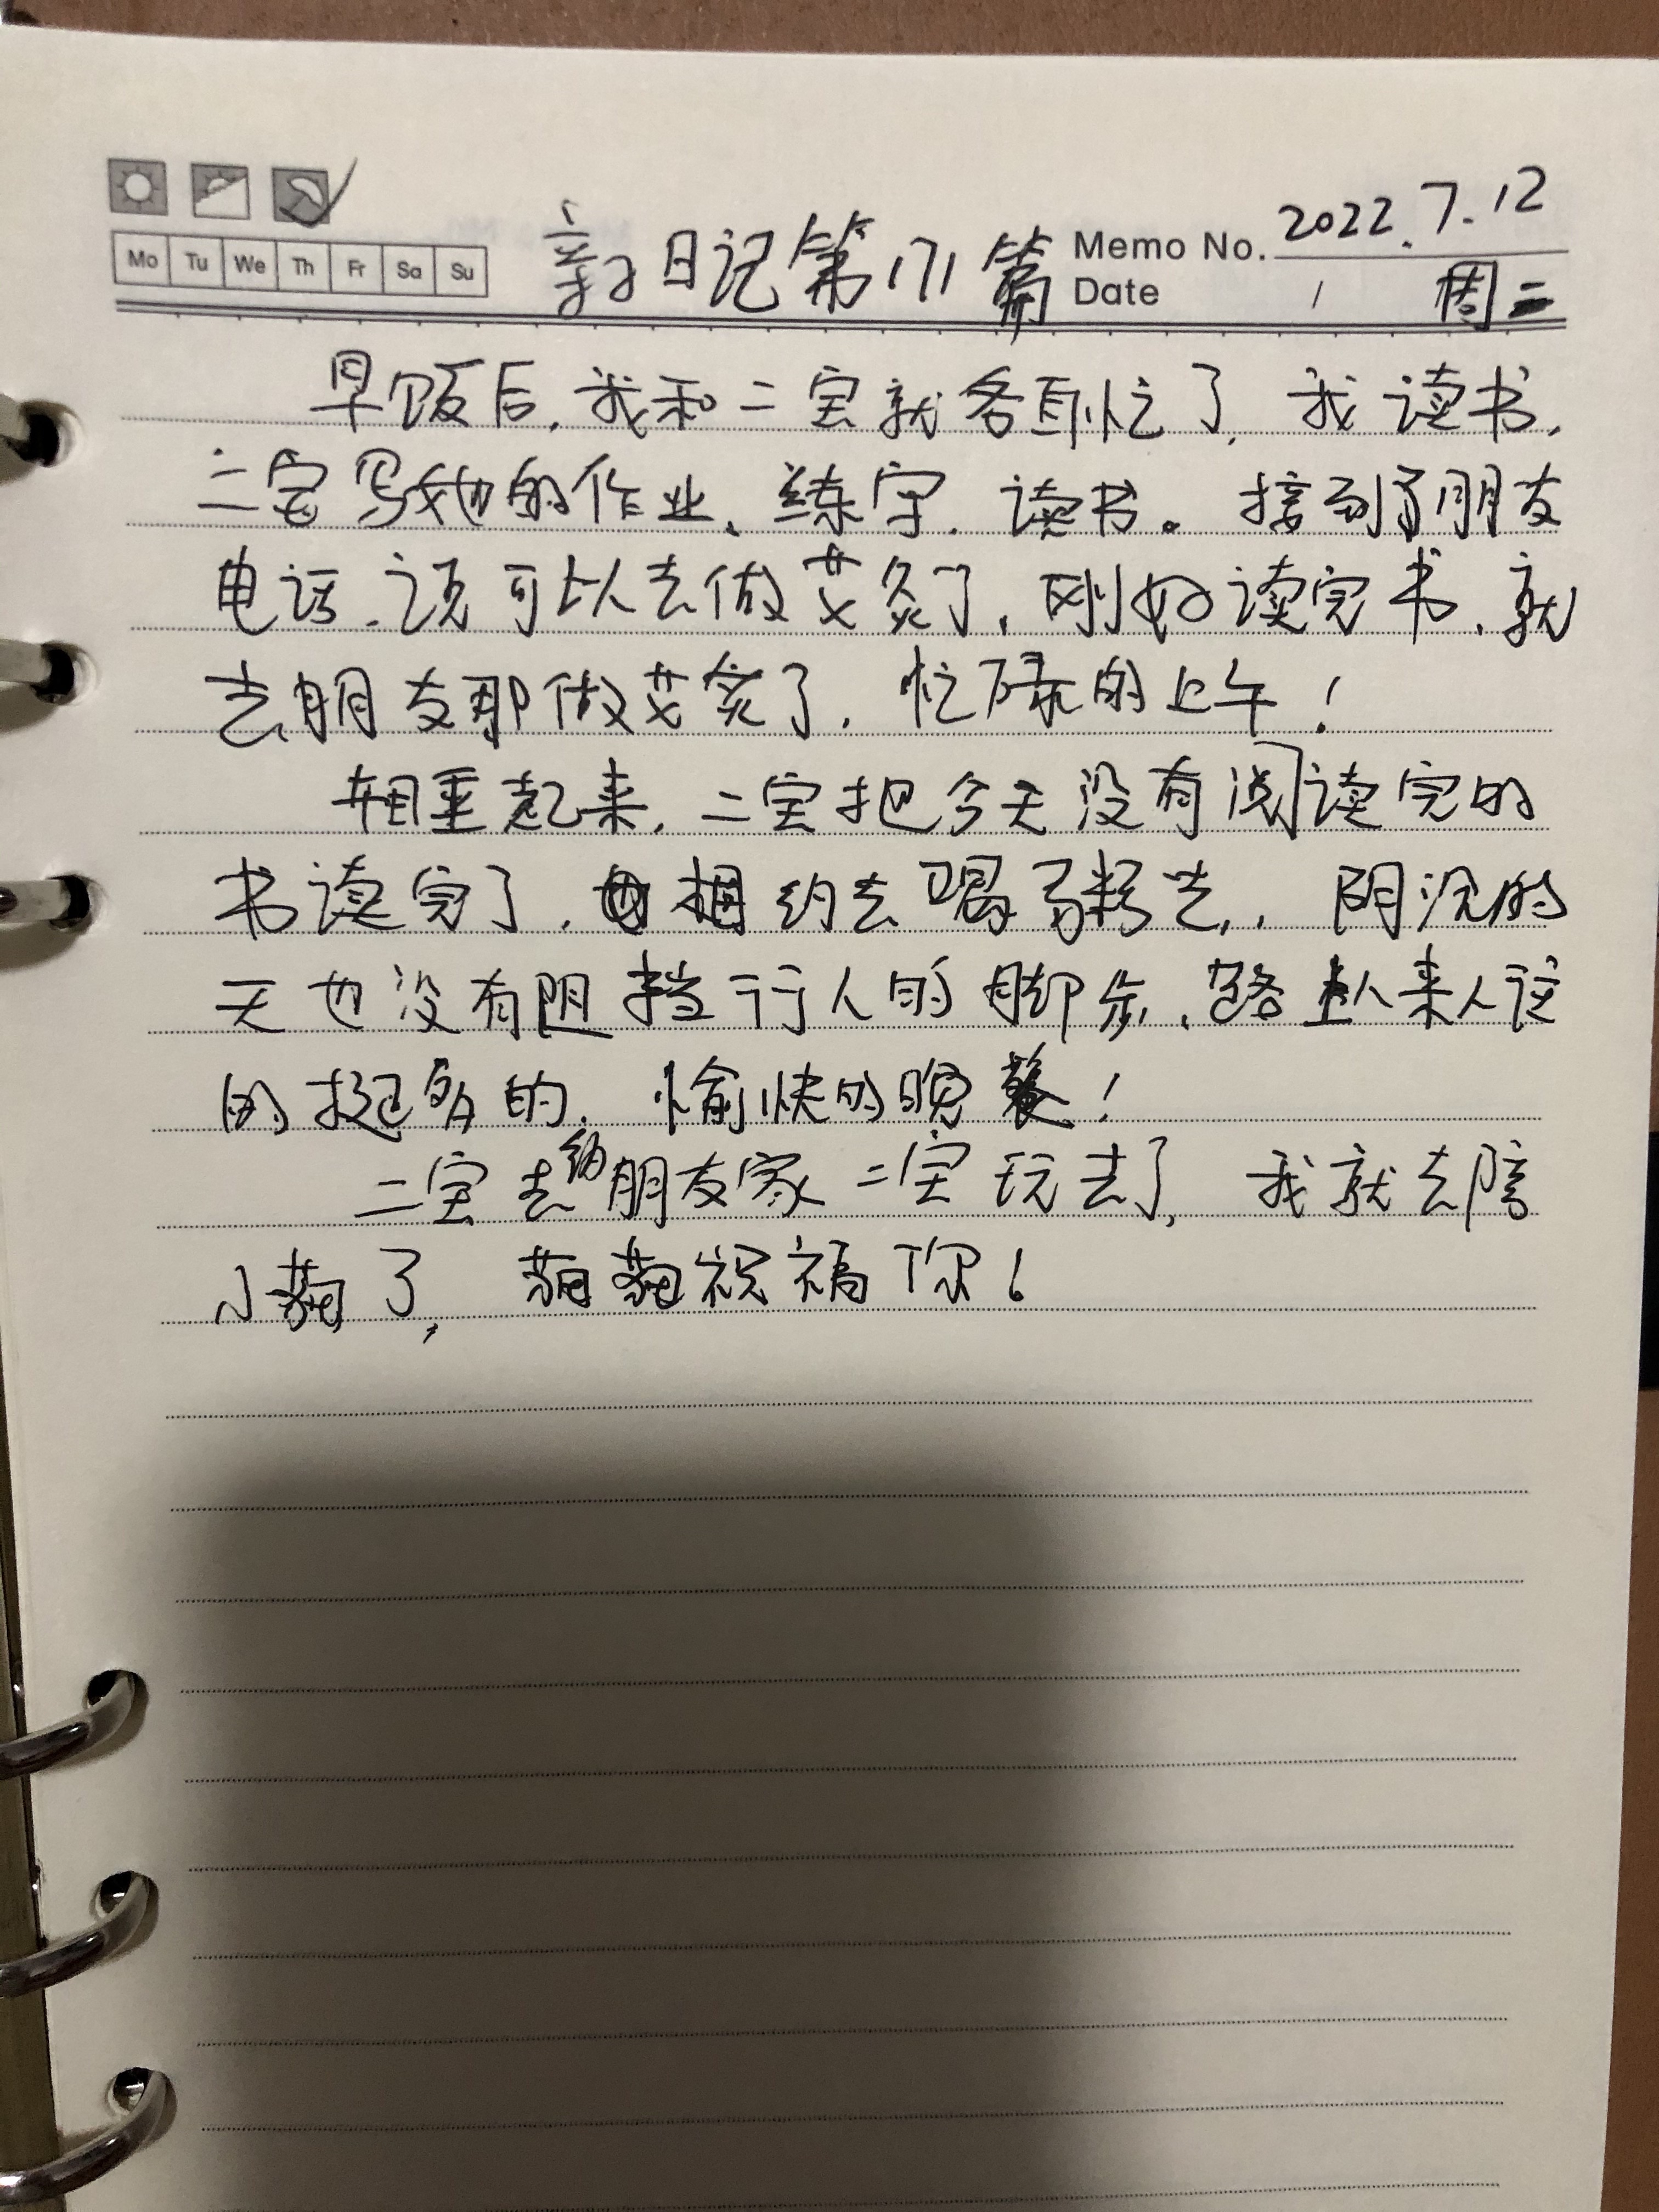 亲子日记第171篇
Memo No. 2022.7.12
Mo Tu We Th Fr Sa Su
Date / 周二
早饭后,我和二宝就各自忙了,我读书,
二宝写她的作业、练字、读书。接到了朋友
电话,说可以去做艾灸了,刚好读完书,就
去朋友那做艾灸了,忙碌的上午!
午睡起来,二宝把今天没有阅读完的
书读完了,相约去喝了粉去,阴沉的
天也没有阻挡行人的脚步,路上人来人往
的挺多的,愉快的晚餐!
二宝去约朋友家二宝玩去了,我就去陪
小菊了,菊菊祝福你!